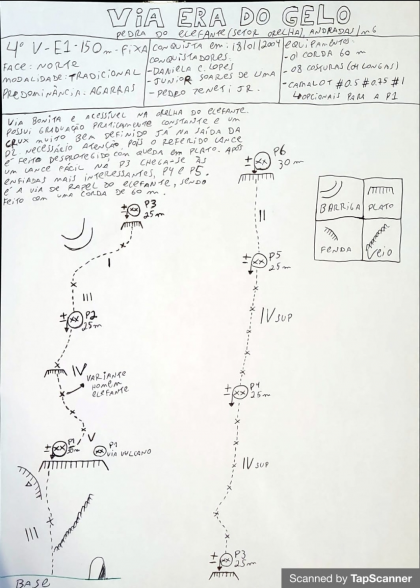 VIA ERA DO GELO
PEDRA DO ELEFANTE (SETOR ORELHA), ANDRADAS/MG
4º V-E1-150m-FIXA
FACE: NORTE
MODALIDADE: TRADICIONAL
PREDOMINÂNCIA: AGARRAS
CONQUISTA EM: 18/01/2004
CONQUISTADORES:
-DANIELA C. LOPES
-JUNIOR SOARES DE LIMA
-PEDRO ZENETI JR.
EQUIPAMENTO:
-01 CORDA 60 m
-08 COSTURAS (02 LONGAS)
-CAMALOT #0.5 #0.75 #1
OPCIONAIS PARA A P1
VIA BONITA E ACESSIVEL NA ORELHA DO ELEFANTE.
POSSUI GRADUAÇÃO PRATICAMENTE CONSTANTE E UM
CRUX MUITO BEM DEFINIDO JÁ NA SAÍDA DA
P1. NECESSÁRIO ATENÇÃO, POIS O REFERIDO LANCE
É FEITO DESPROTEGIDO, COM QUEDA EM PLATO. APÓS
UM LANCE FÁCIL NA P3 CHEGA-SE ÀS
ENFIADAS MAIS INTERESSANTES, P4 E P5.
É A VIA DE RAPEL DO ELEFANTE, SENDO
FEITO COM UMA CORDA DE 60 m.
P6
30m
BARRIGA
PLATO
FENDA
VEIO
P3
25m
II
I
P5
25m
III
P2
25m
IV SUP
IV
VARIANTE
HOMEM
ELEFANTE
P4
25m
V
P1
30m
P1
VIA VULCANO
IV SUP
III
P3
25m
BASE
Scanned by TapScanner